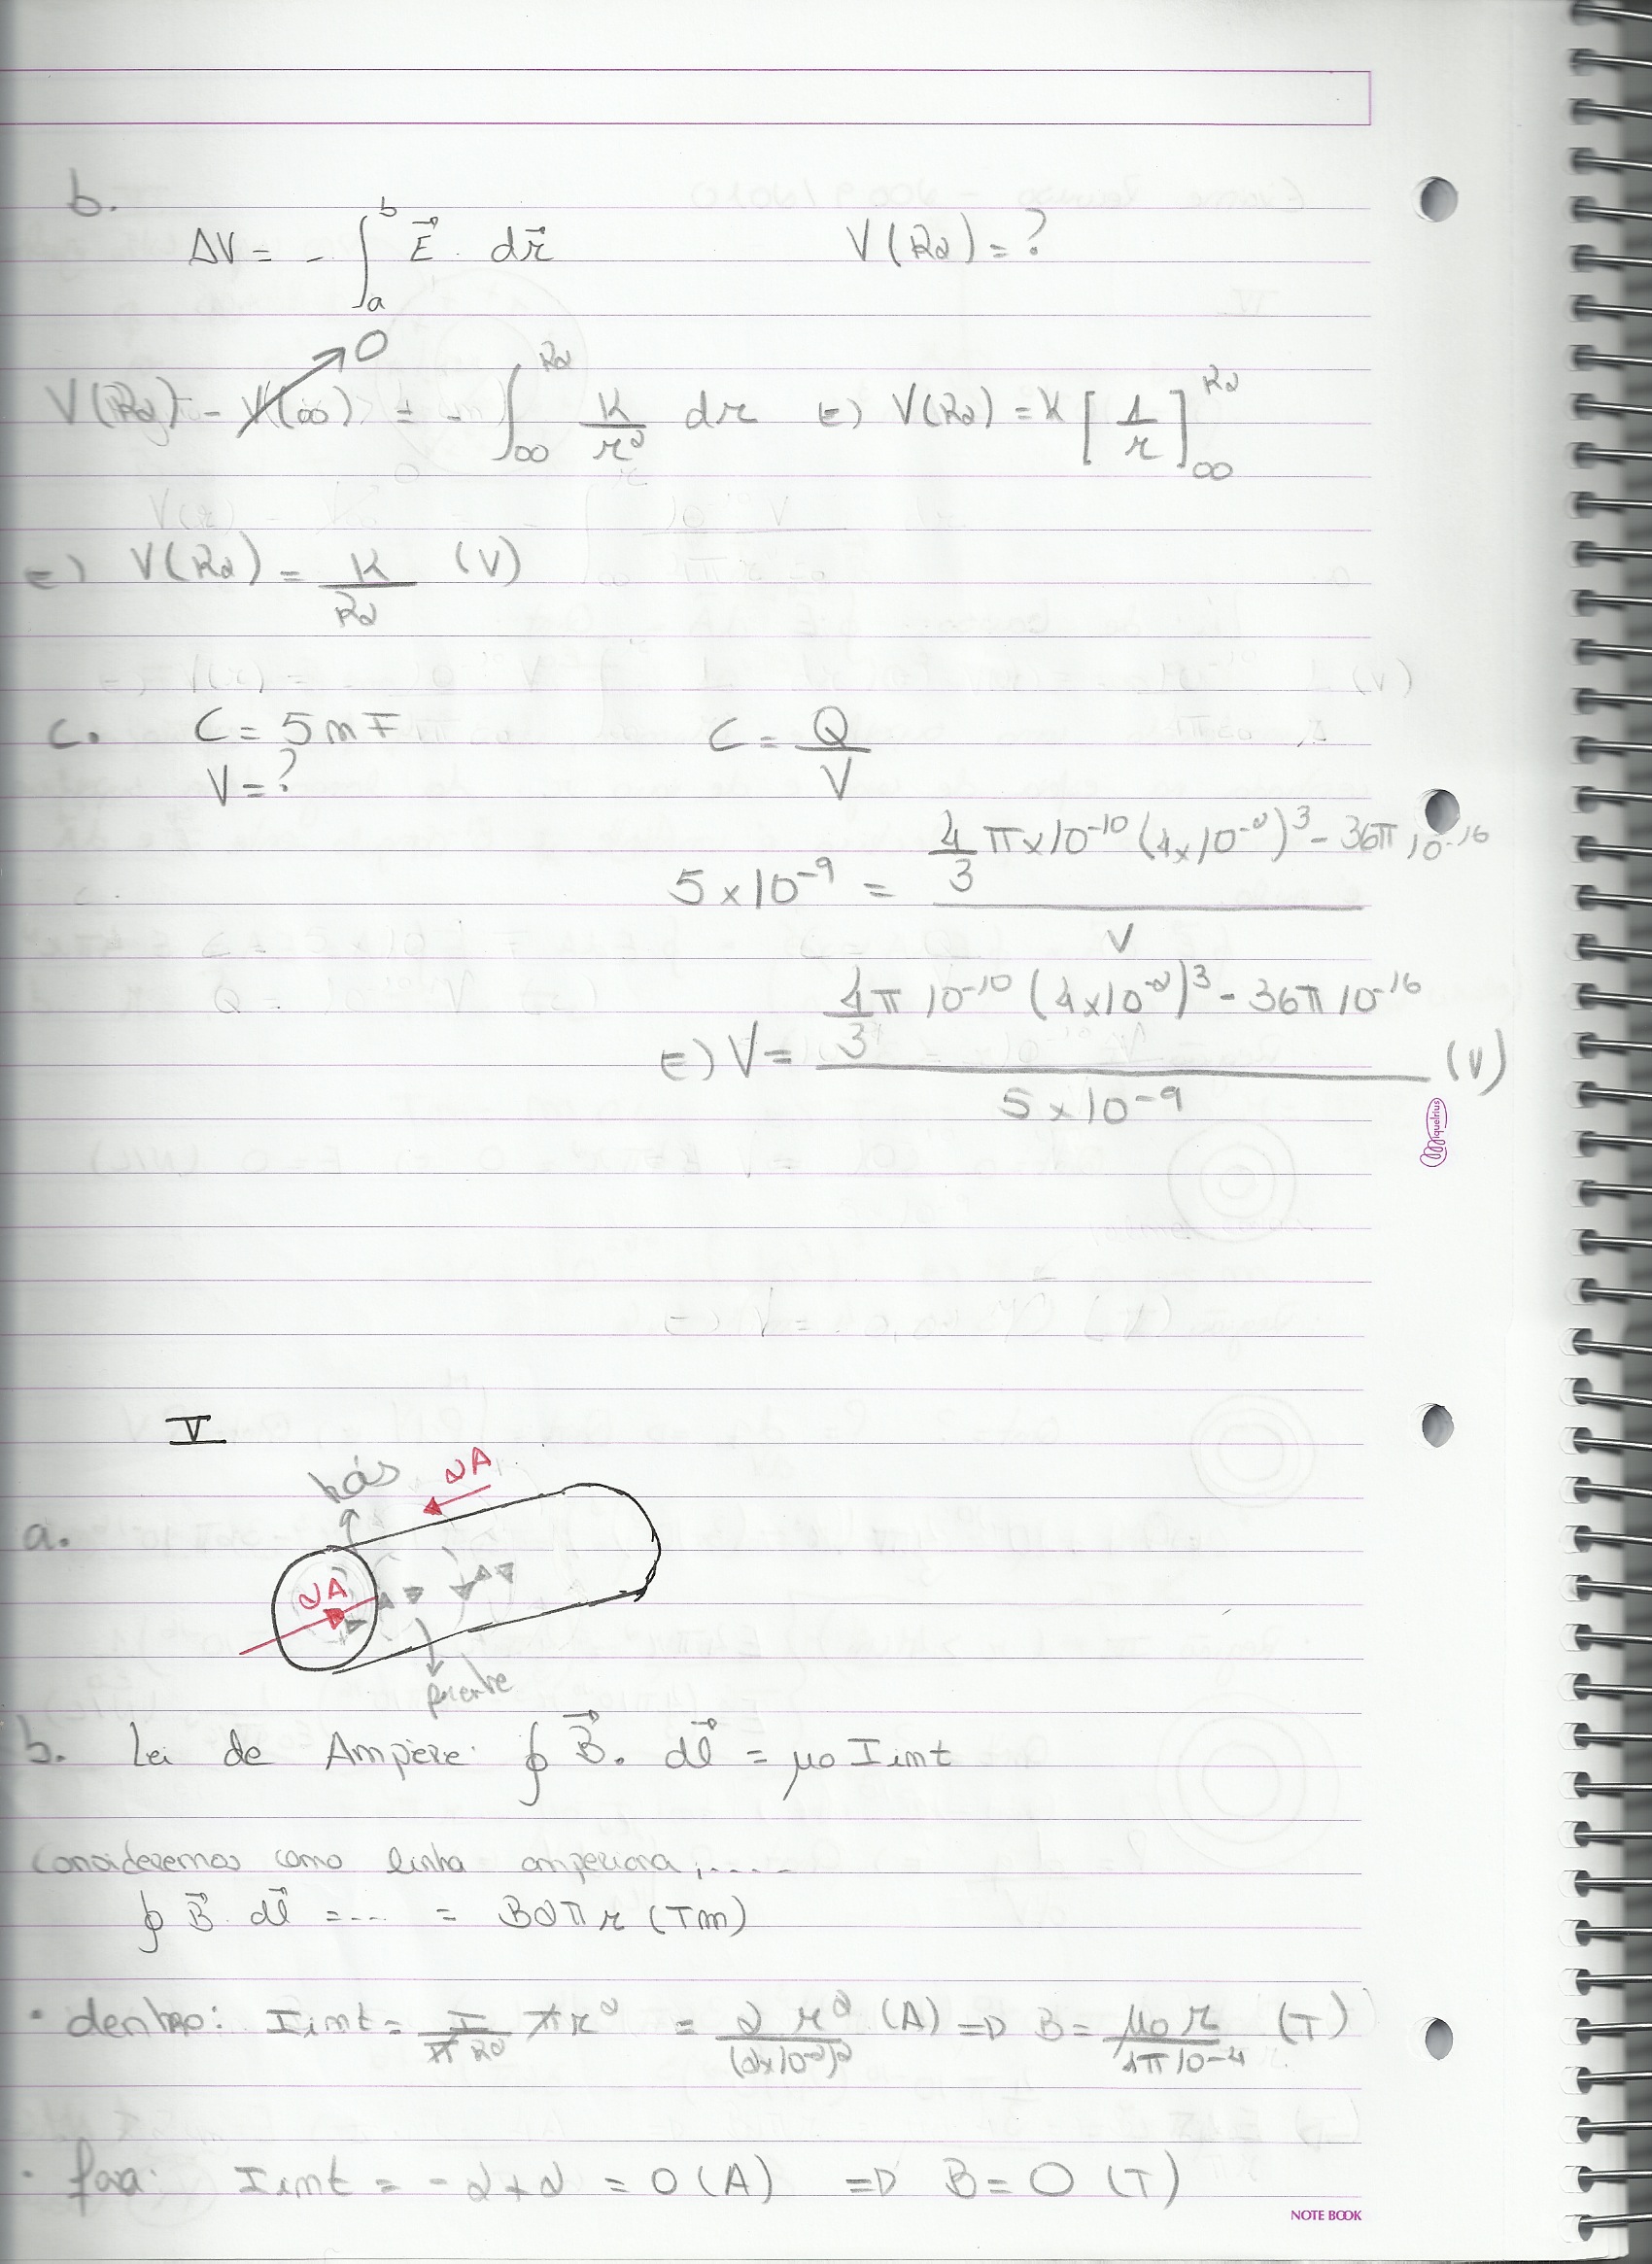 b.
ΔV = - ∫ₐᵇ E⃗ . dr⃗   V(R2) = ?
V(R2) - V(∞) = - ∫ K/r² dr (=) V(R2) = K [1/r]
0
R2
∞
R2
∞
(=) V(R2) = K/R2 (V)
c. C = 5 nF   C = Q/V
V = ?
5 × 10⁻⁹ = (4/3 π × 10⁻¹⁰ (4×10⁻²)³ - 36π 10⁻¹⁶)/V
(=) V = (4/3 π 10⁻¹⁰ (4×10⁻²)³ - 36π 10⁻¹⁶)/(5 × 10⁻⁹) (V)
Miquelrius
V
trás 2A
a.
2A
frente
b. Lei de Ampère: ∮ B⃗ . dl⃗ = μ0 Iint
Consideremos como linha amperiana, .....
∮ B⃗ . dl⃗ = ... = B2πr (Tm)
• dentro: Iint = I/(πR²) πr² = 2 r²/(2×10⁻²)² (A) => B = μ0 r/(4π 10⁻⁴) (T)
• fora: Iint = -2+2 = 0 (A) => B = 0 (T)
NOTE BOOK